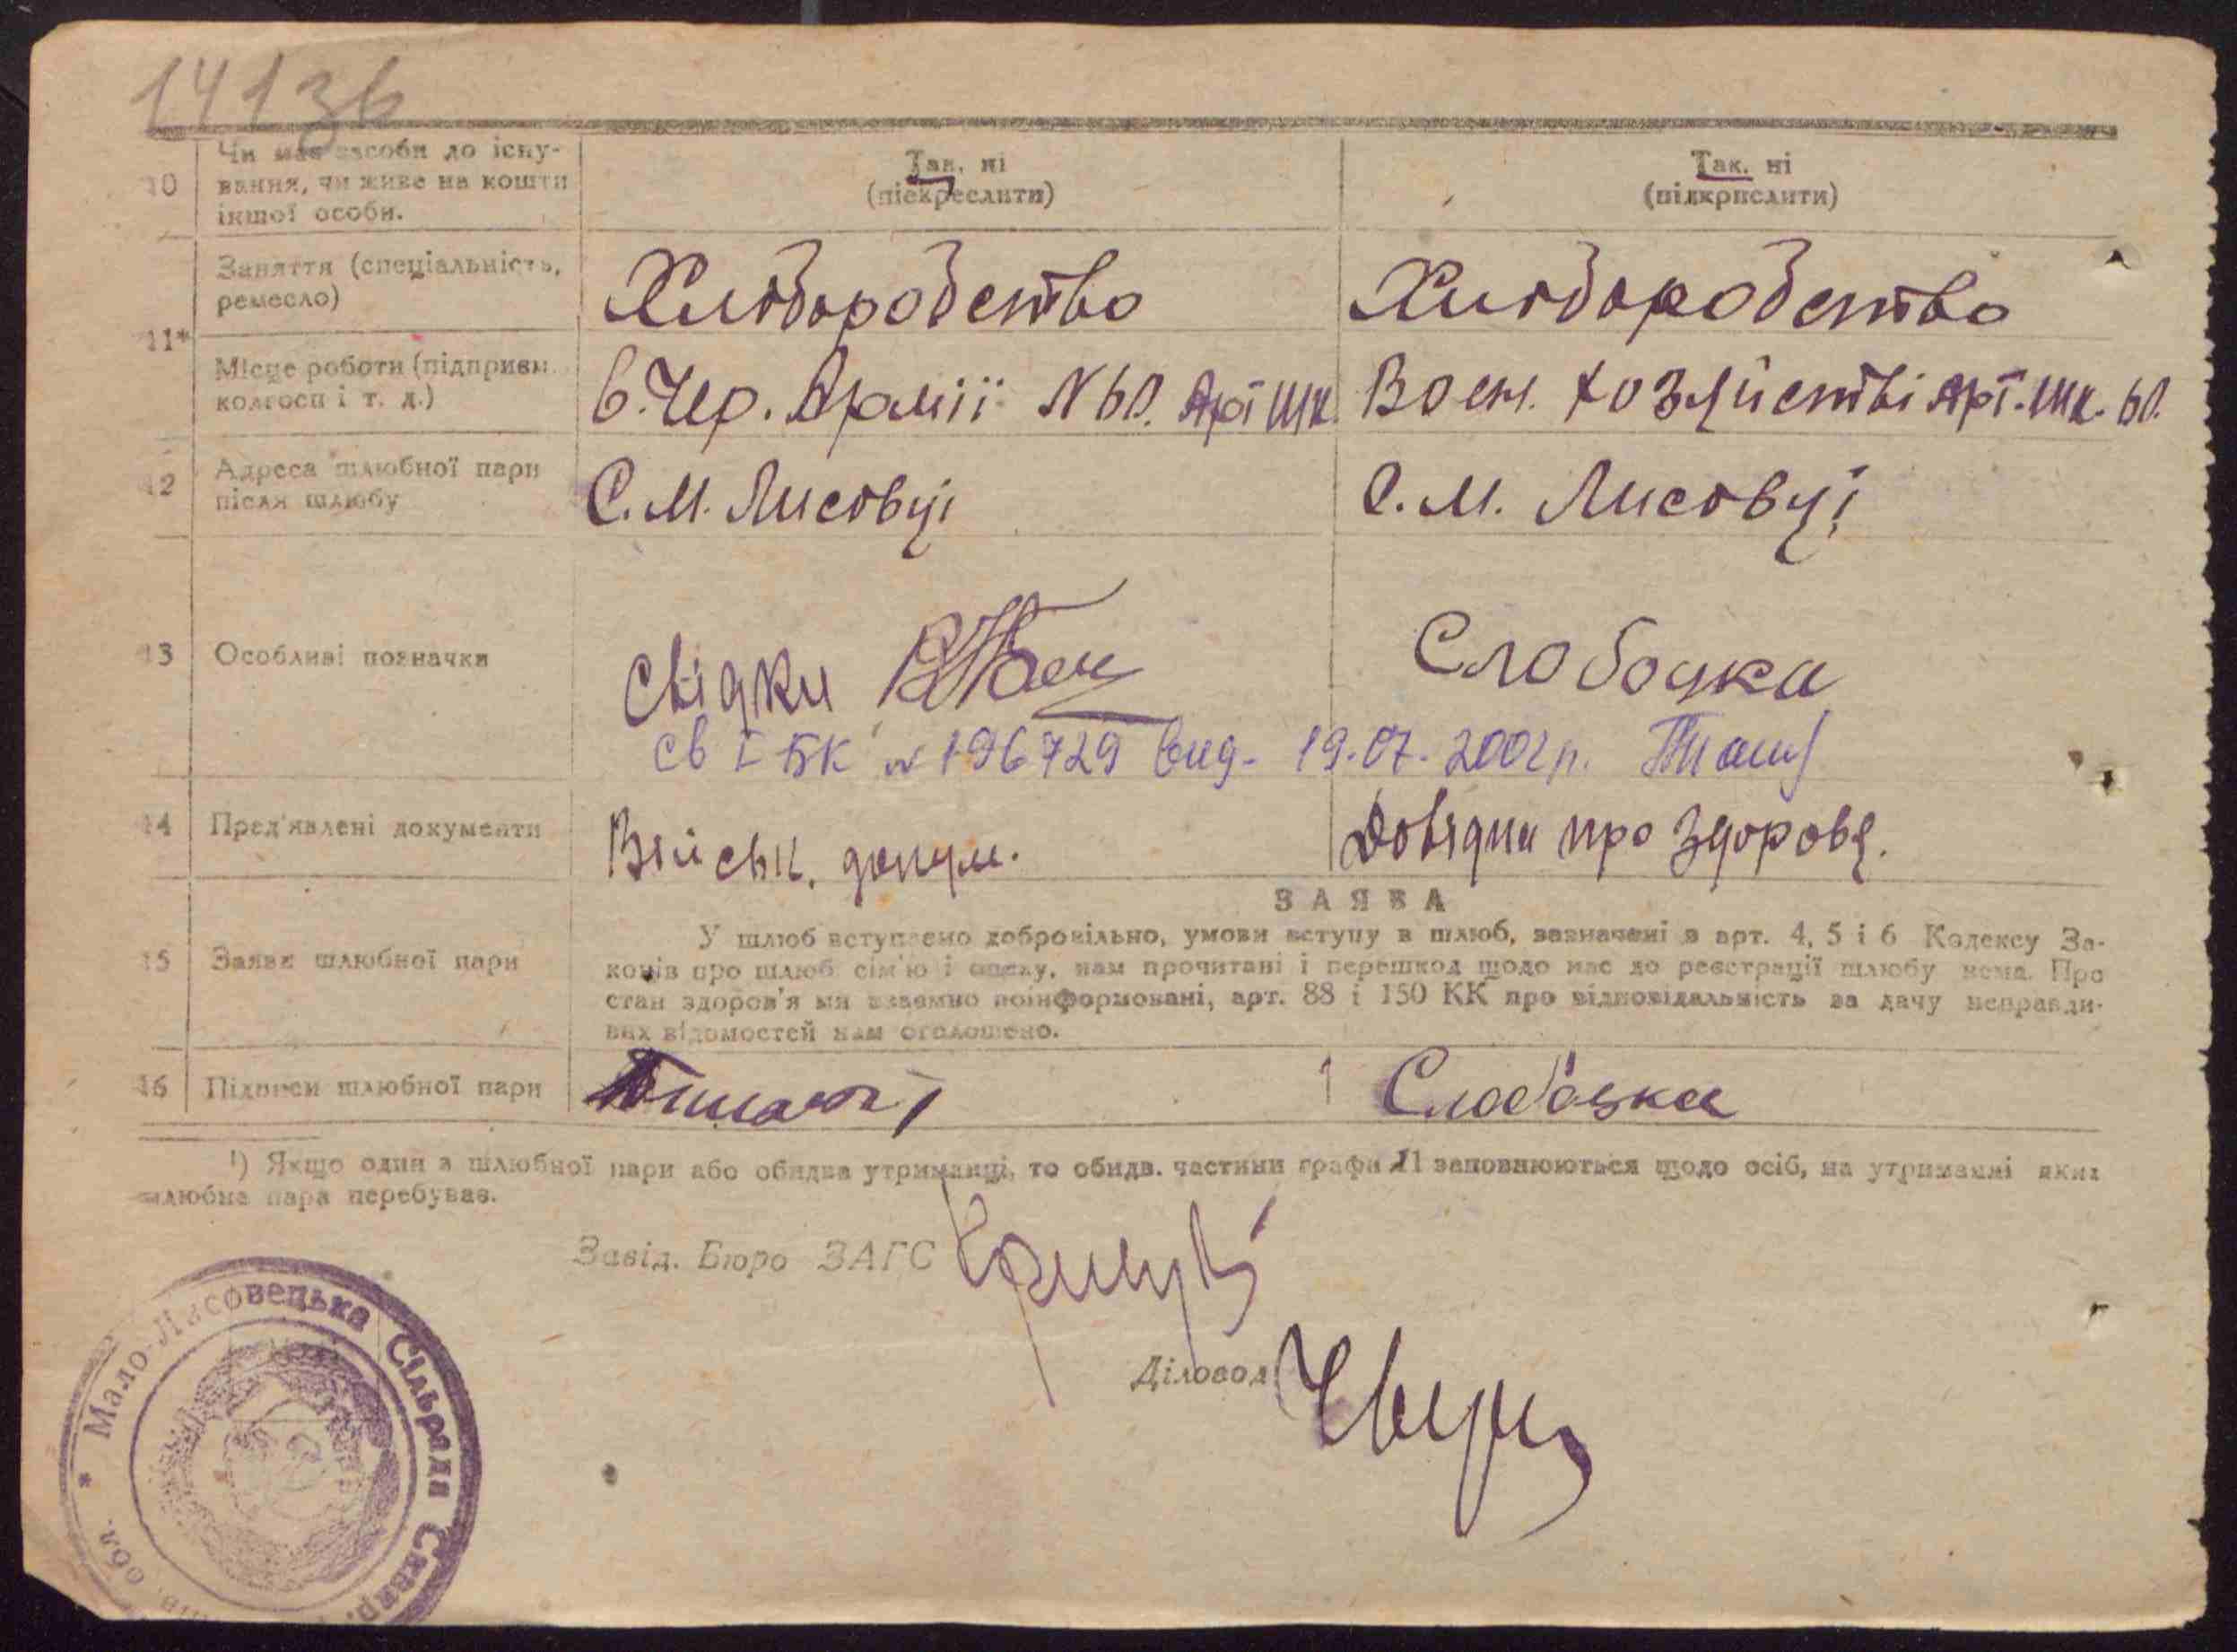 141зв
10 Чи має засоби до існування, чи живе на кошти іншої особи.
Так, ні
(піекреслити)
Так, ні
(підкрислити)
11*
Заняття (спеціальність, ремесло)
Хліборобство
Хліборобство
Місце роботи (підприєм. колгосп і т. д.)
в Чер. Армії N 60. Арт шк.
Воен. хозяйстві Арт. шк. 60.
12 Адреса шлюбної пари після шлюбу
С. М. Лисовці
С. М. Лисовці
13 Особливі позначки
Свідки
Слобоцка
св І-БК № 196729 вид. 19.07.2002р.
14 Пред'явлені документи
Військ. докум.
Довідка про здоровя.
15 Заява шлюбної пари
ЗАЯВА
У шлюб вступаємо добровільно, умови вступу в шлюб, зазначені в арт. 4, 5 і 6 Кодексу За-
конів про шлюб сім'ю і опеку, нам прочитані і перешкод щодо нас до реєстрації шлюбу нема. Про
стан здоров'я ми взаємно поінформовані, арт. 88 і 150 КК про відповідальність за дачу неправди-
вих відомостей нам оголошено.
16 Підписи шлюбної пари
Слобоцка
¹) Якщо один з шлюбної пари або обидва утриманці, то обидв. частини графи 11 заповнюються щодо осіб, на утриманні яких
шлюбна пара перебуває.
Завід. Бюро ЗАГС
Діловод
* Мало-Лисовецька Сільрада Сквир.
обл.